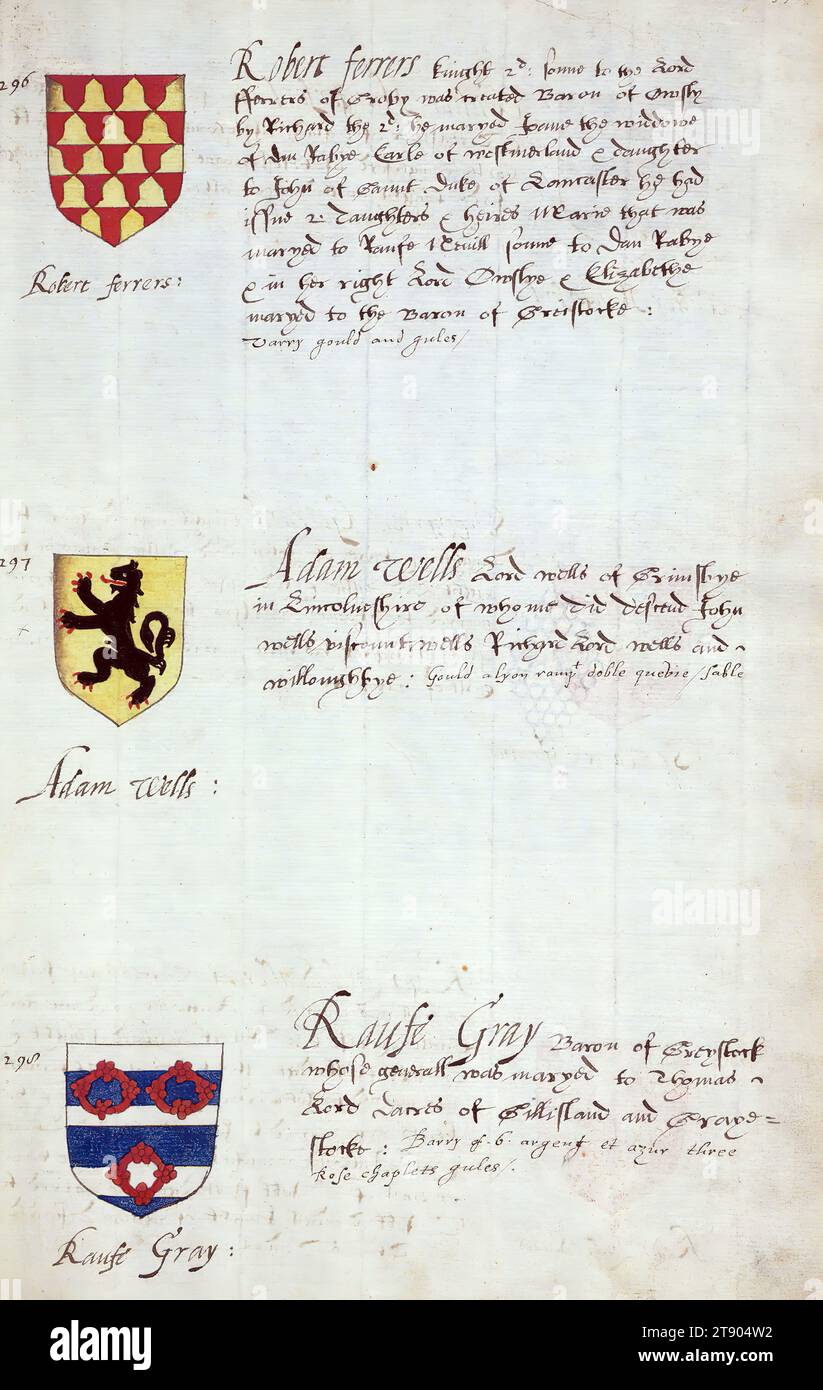 296
Robert ferrers knight 2d: sonne to the Lord
fferrers of Groby was created Baron of Owsly
by Richard the 2d: he maryed Jane the widdowe
of dan Rabye Earle of westmerland & daughter
to John of Gaunt Duke of Loncaster he had
issue 2 daughters & heires Marie that was
maryed to Raufe Nevill sonne to dan Rabye
& in her right Lord Owslye & Elizabethe
maryed to the Baron of Greistocke:
Varry gould and gules/
Robert ferrers:
297
Adam Wells Lord wells of Grimsbye
in Lincolneshire of whome did descend John
wells viscount wells Richard Lord wells and
willoughbye: Gould a lyon rampt doble quevie/sable
Adam Wells:
298
Raufe Gray Baron of Greystock
whose generall was maryed to Thomas
Lord dacres of Gillisland and Graye=
stocke: Barry of 6 argent et azur three
Rose chaplets gules/.
Raufe Gray:
alamy
alamy
alamy
Image ID: 2T904W2
www.alamy.com